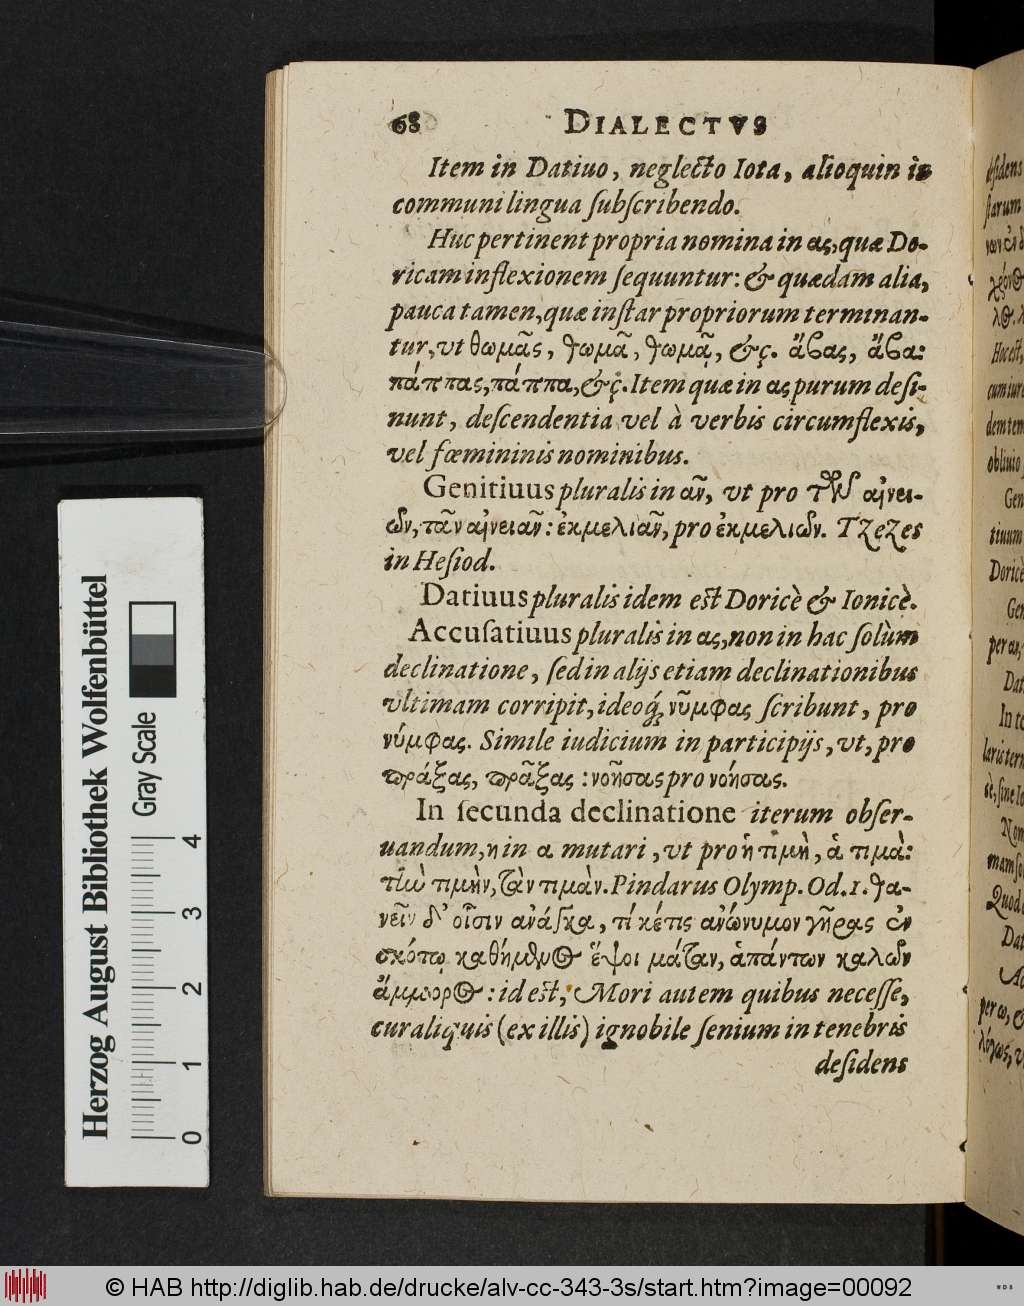 68 DIALECTVS
Item in Datiuo, neglecto Iota, alioquin in
communi lingua ſubſcribendo.
Huc pertinent propria nomina in ας, quæ Do-
ricam inflexionem ſequuntur: & quædam alia,
pauca tamen, quæ inſtar propriorum terminan-
tur, vt θωμᾶς, θωμᾶ, θωμᾷ, &ç. ἄβας, ἄβα:
πάππας, πάππα, &ç. Item quæ in ας purum deſi-
nunt, deſcendentia vel à verbis circumflexis,
vel fœmininis nominibus.
Genitiuus pluralis in ᾶν, vt pro τῶν αἰνει-
ῶν, τᾶν αἰνειᾶν: ἐκμελιᾶν, pro ἐκμελιῶν. Tzezes
in Heſiod.
Datiuus pluralis idem eſt Doricè & Ionicè.
Accuſatiuus pluralis in ας, non in hac ſolùm
declinatione, ſed in alijs etiam declinationibus
vltimam corripit, ideoq́ȝ νῦμφας ſcribunt, pro
νύμφας. Simile iudicium in participijs, vt, pro
πράξας, πρᾶξας: νοῆσας pro νοήσας.
In ſecunda declinatione iterum obſer-
uandum, η in α mutari, vt pro ἡ τιμὴ, ἁ τιμὰ:
τὴν τιμὴν, τὰν τιμὰν. Pindarus Olymp. Od. 1. θα-
νεῖν δ' οἷσιν ἀνάγκα, τί κέ τις ἀνώνυμον γῆρας ἐν
σκότῳ καθήμενος ἕψοι μάταν, ἁπάντων καλῶν
ἄμμορος: id eſt, Mori autem quibus neceſſe,
cur aliquis (ex illis) ignobile ſenium in tenebris
deſidens
Herzog August Bibliothek Wolfenbüttel
Gray Scale
0 1 2 3 4
© HAB http://diglib.hab.de/drucke/alv-cc-343-3s/start.htm?image=00092